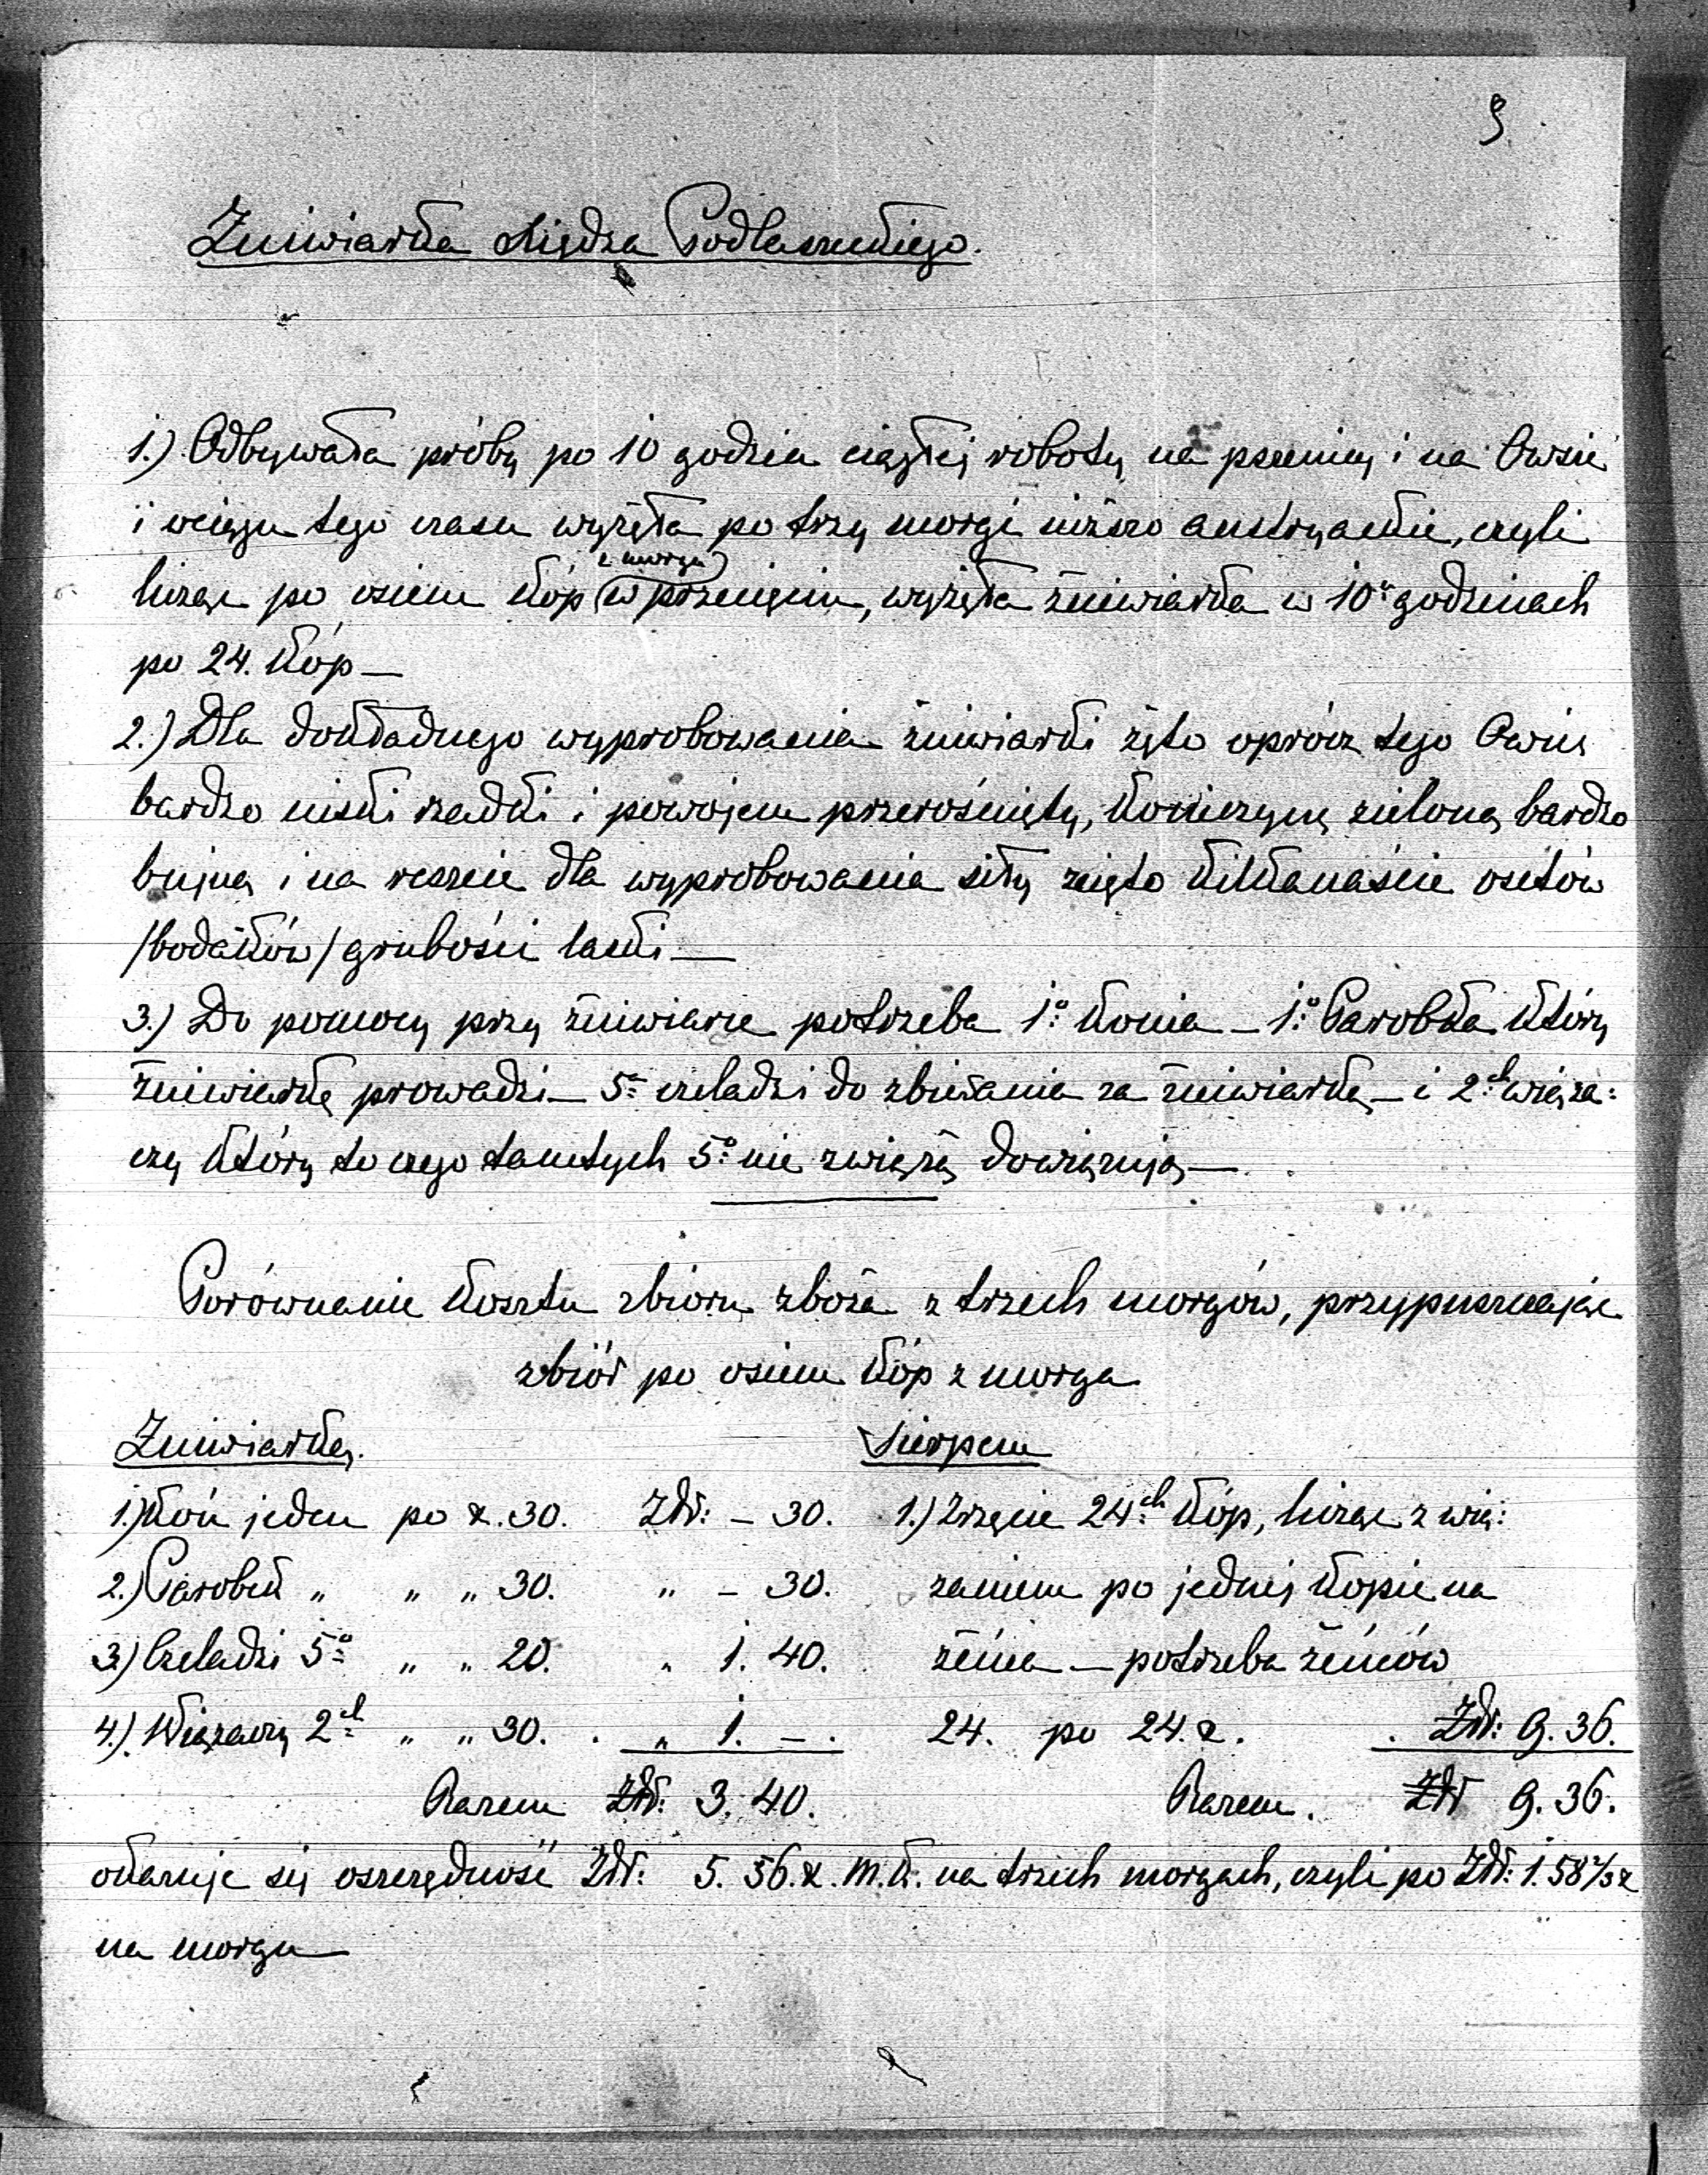 9
Żniwiarka księdza Podlaszeckiego.
1.) Odbywała próbę po 10 godzin ciągłej roboty na pszenicy i na Owsie
i wciągu tego czasu wyżęła po trzy morgi niższo austryackie, czyli
licząc po ośiem kóp z morga (w przecięciu, wyżęła żniwiarka w 10u godzinach
po 24. kóp —
2.) Dla dokładnego wyprobowania żniwiarki żęto oprócz tego Owies
bardzo niski rzadki i powojem przerośnięty, koniczynę zieloną bardzo
bujną i na reszcie dla wyprobowania siły zżęto kilkanaście osetów
/bodaków/ grubości laski —
3.) Do pomocy przy żniwiarce potrzeba 1o konia — 1o Parobka który
żniwiarkę prowadzi — 5o czeladzi do zbierania za żniwiarką — i 2ch wiąza:
czy który to czego tamtych 5o nie zwiążą dowiązują —
Porównanie kosztu zbioru zboża z trzech morgów, przypuszczając
zbiór po ośiem kóp z morga
Żniwiarką.
Sierpem
1.) Koń jeden po x. 30. Złr: – 30.
1.) Zżęcie 24ch kóp, licząc z wią:
2.) Parobek " " " 30. " – 30.
zaniem po jednej kopie na
3.) Czeladzi 5o " " 20. " 1. 40.
żeńca — potrzeba żeńców
4.) Wiązaczy 2ch " " 30. " 1. – .
24. po 24. x. Złr: 9. 36.
Razem Złr: 3. 40.
Razem. Złr 9. 36.
okazuje się oszczędność Złr: 5. 56. x. M.K. na trzech morgach, czyli po Złr: 1. 58 2/3 x
na morgu —